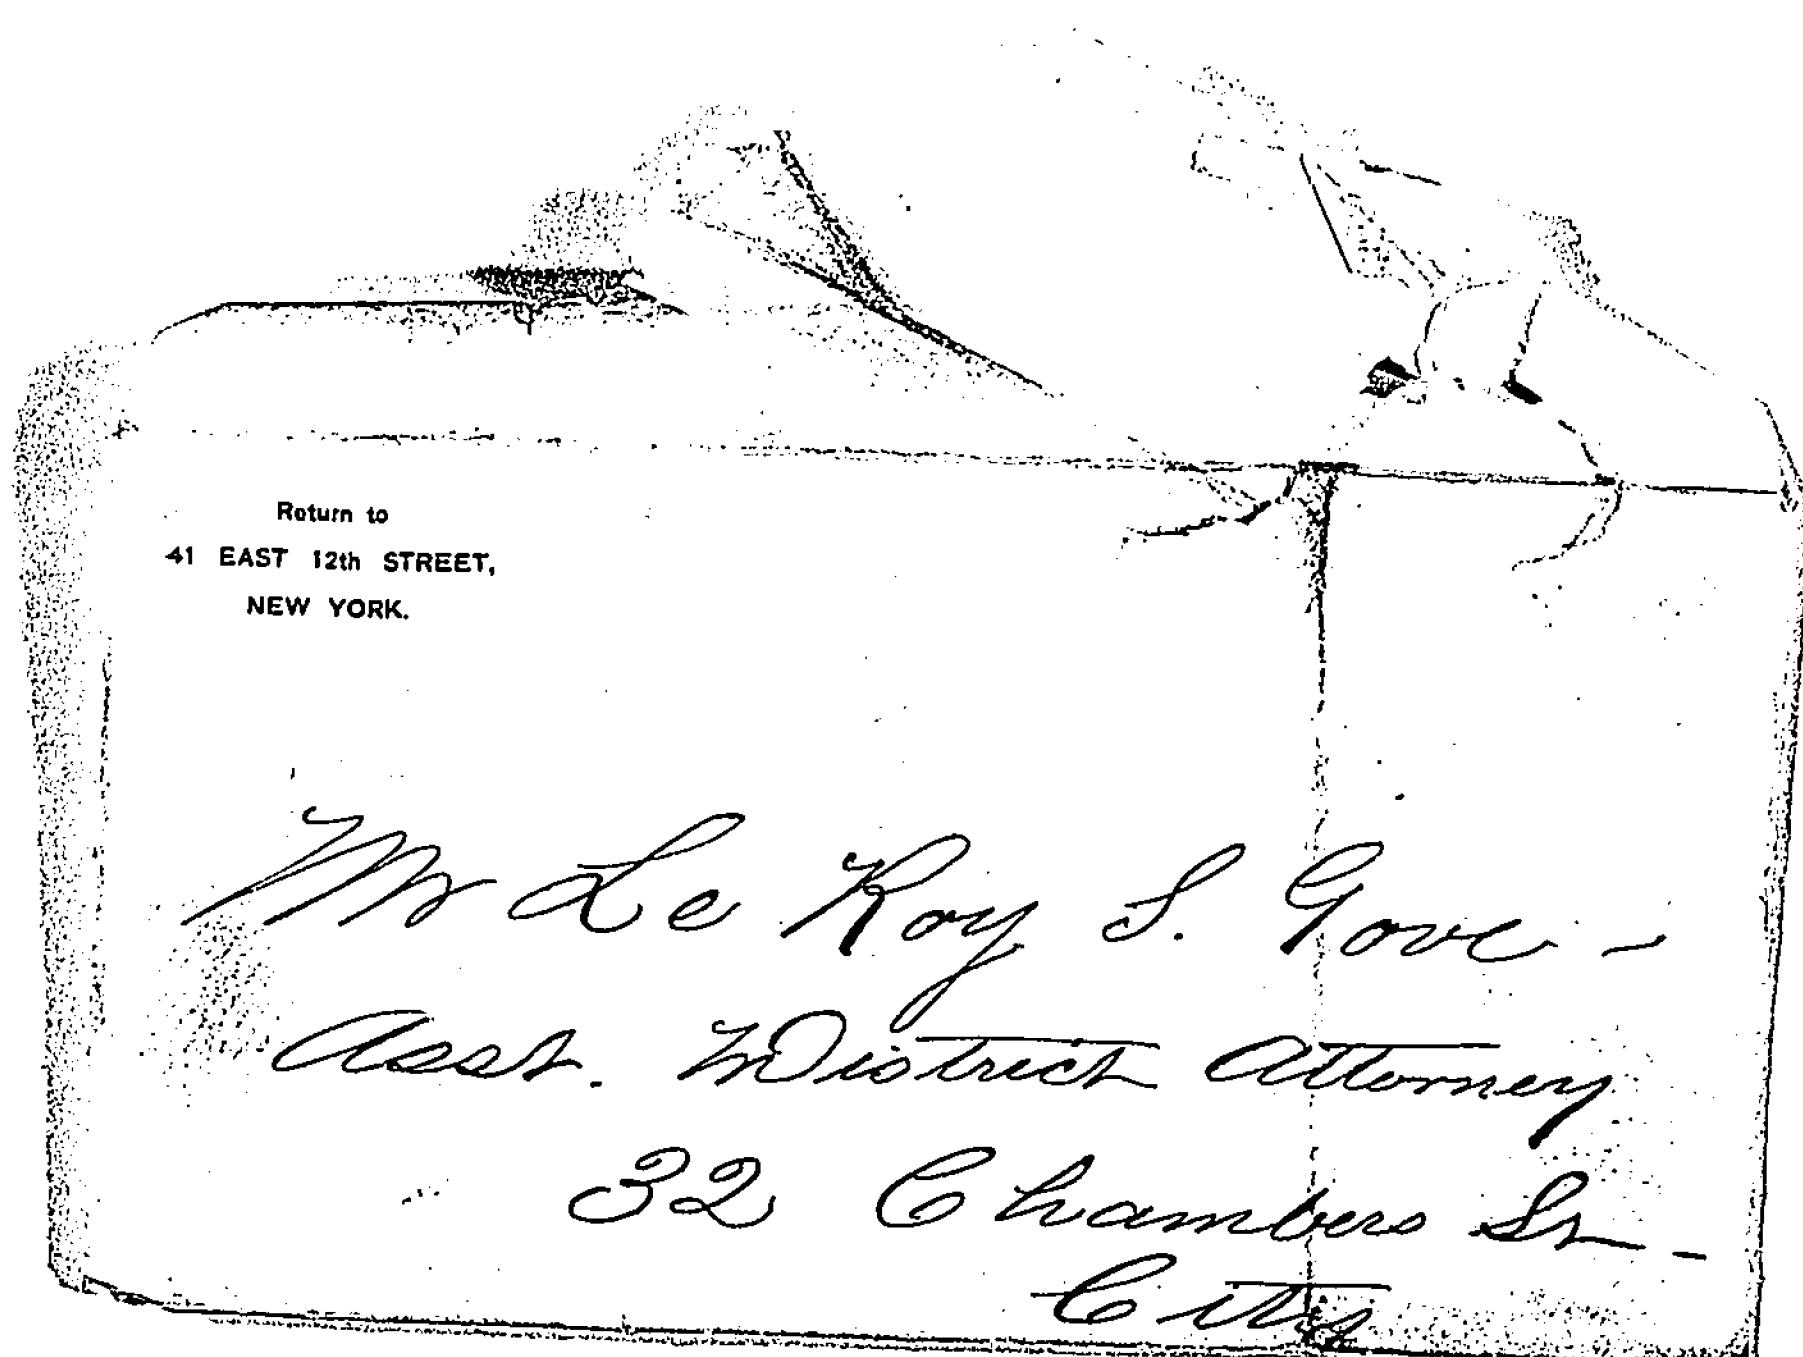 Return to
41 EAST 12th STREET,
NEW YORK.
Mr Le Roy S. Gove -
Asst. District Attorney
32 Chambers St -
City